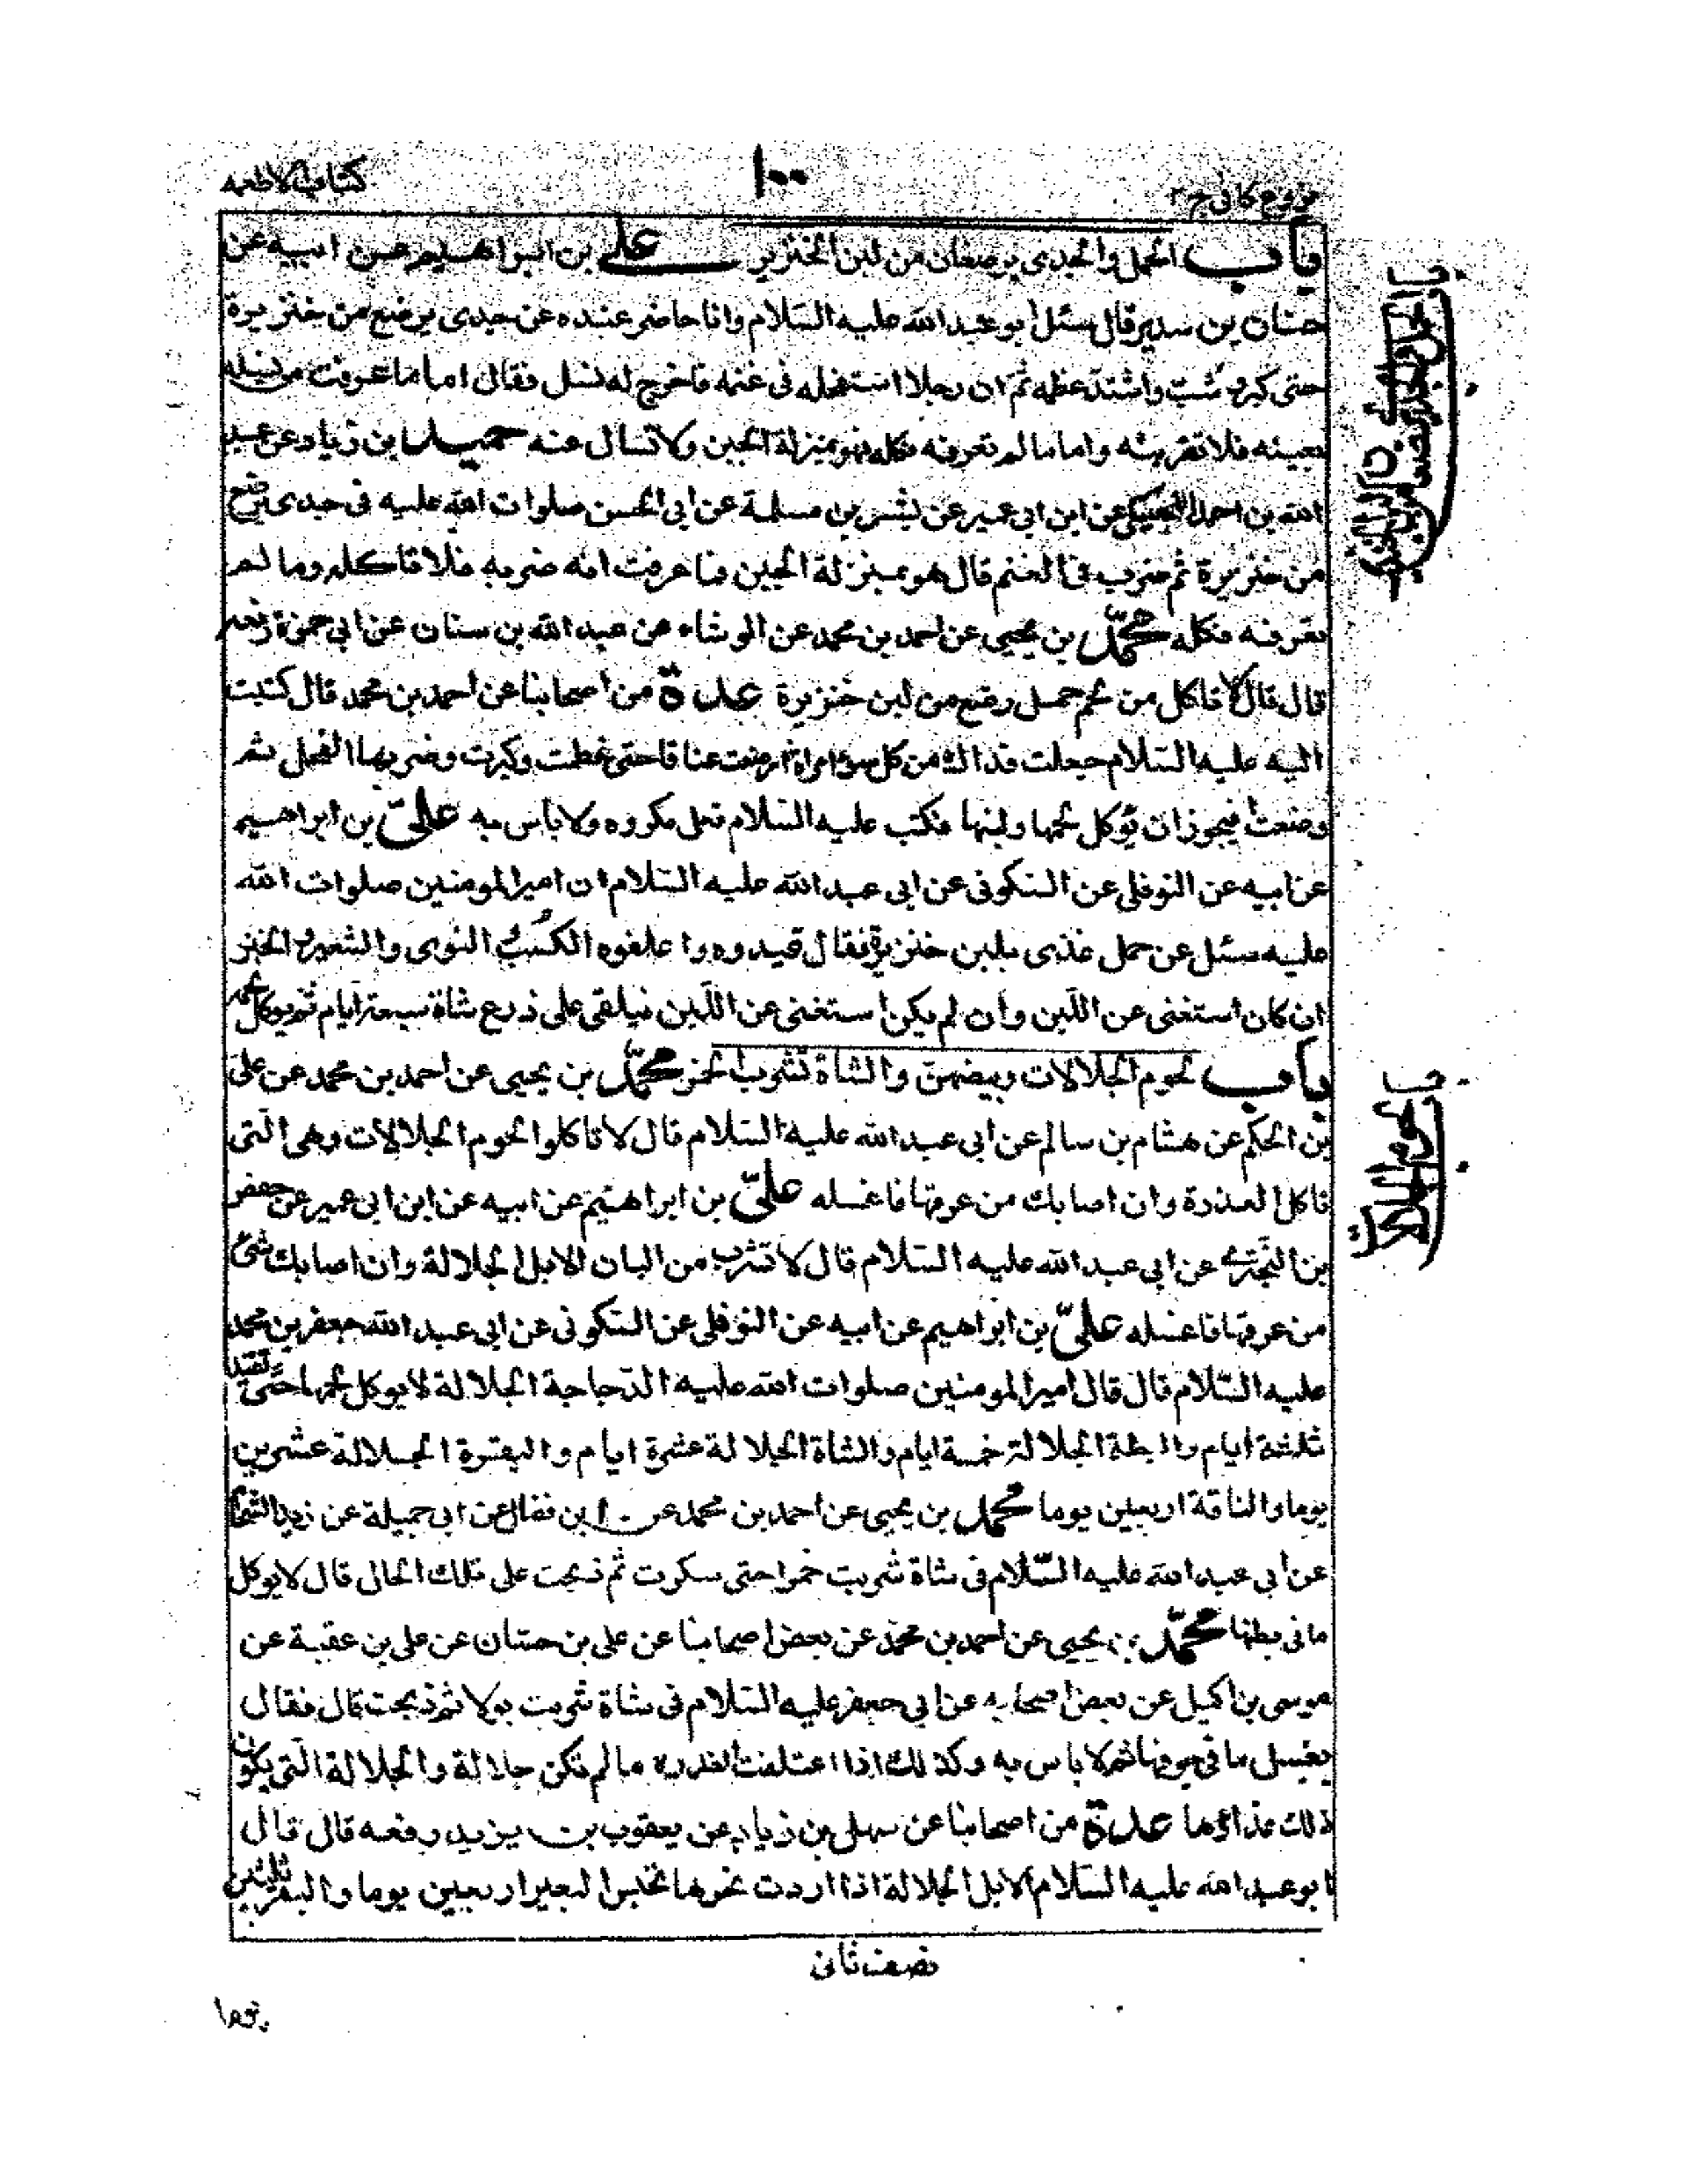 فروع كافى ج ٢
١٠٠
كتاب الاطعمه
باب الحمل والجدى يرضعان من لبن الخنزير على بن ابراهيم عن ابيه عن
حنان بن سدير قال سئل ابو عبد الله عليه السلام وانا حاضر عنده عن جدى يرضع من خنزيرة
حتى كبر وشب واشتد عظمه ثم ان رجلا استفحله فى غنمه فاخرج له نسل فقال اما ما عرفت من نسله
بعينه فلا تقربنه واما ما لم تعرفه فكله فهو بمنزلة الجبن ولا تسال عنه حميد بن زياد عن عبد
الله بن احمد النهيكى عن ابن ابى عمير عن بشر بن مسلمة عن ابى الحسن صلوات الله عليه فى جدى يرضع
من خنزيرة ثم ضرب فى الغنم قال هو بمنزلة الجبن فما عرفت انه ضربه فلا تاكله وما لم
تعرفه فكله محمد بن يحيى عن احمد بن محمد عن الوشاء عن عبد الله بن سنان عن ابى حمزة رفعه
قال قال لا تاكل من لحم حمل رضع من لبن خنزيرة عدة من اصحابنا عن احمد بن محمد قال كتبت
اليه عليه السلام جعلت فداك من كل سوء امراة ارضعت عناقا حتى فطمت وكبرت وضربها الفحل ثم
وضعت افيجوز ان يؤكل لحمها ولبنها فكتب عليه السلام فعل مكروه ولا باس به على بن ابراهيم
عن ابيه عن النوفلى عن السكونى عن ابى عبد الله عليه السلام ان امير المومنين صلوات الله
عليه سئل عن حمل غذى بلبن خنزيرة فقال قيدوه واعلفوه الكسب والنوى والشعير والخبز
ان كان استغنى عن اللبن وان لم يكن استغنى عن اللبن فيلقى على ضرع شاة سبعة ايام ثم يوكل لحمه
باب لحوم الجلالات وبيضهن والشاة تشرب الخمر محمد بن يحيى عن احمد بن محمد عن على
بن الحكم عن هشام بن سالم عن ابى عبد الله عليه السلام قال لا تاكلوا لحوم الجلالات وهى التى
تاكل العذرة وان اصابك من عرقها فاغسله على بن ابراهيم عن ابيه عن ابن ابى عمير عن حفص
بن البخترى عن ابى عبد الله عليه السلام قال لا تشرب من البان الابل الجلالة وان اصابك شئ
من عرقها فاغسله على بن ابراهيم عن ابيه عن النوفلى عن السكونى عن ابى عبد الله جعفر بن محمد
عليه السلام قال قال امير المومنين صلوات الله عليه الدجاجة الجلالة لا يوكل لحمها حتى تقيد
ثلثة ايام والبطة الجلالة خمسة ايام والشاة الجلالة عشرة ايام والبقرة الجلالة عشرين
يوما والناقة اربعين يوما محمد بن يحيى عن احمد بن محمد عن ابن فضال عن ابى جميلة عن زيد الشحام
عن ابى عبد الله عليه السلام فى شاة شربت خمرا حتى سكرت ثم ذبحت على تلك الحال قال لا يوكل
ما فى بطنها محمد بن يحيى عن احمد بن محمد عن بعض اصحابنا عن على بن حسان عن على بن عقبة عن
موسى بن اكيل عن بعض اصحابه عن ابى جعفر عليه السلام فى شاة شربت بولا ثم ذبحت قال فقال
يغسل ما فى جوفها ثم لا باس به وكذلك اذا اعتلفت العذره ما لم تكن جلالة والجلالة التى يكون
ذلك غذاؤها عدة من اصحابنا عن سهل بن زياد عن يعقوب بن يزيد رفعه قال قال
ابو عبد الله عليه السلام الابل الجلالة اذا اردت نحرها تحبس البعير اربعين يوما والبقر ثلثين
نصف ثانى
يوما
باب الحمل والجدى يرضعان من لبن الخنزير
باب لحوم الجلالات